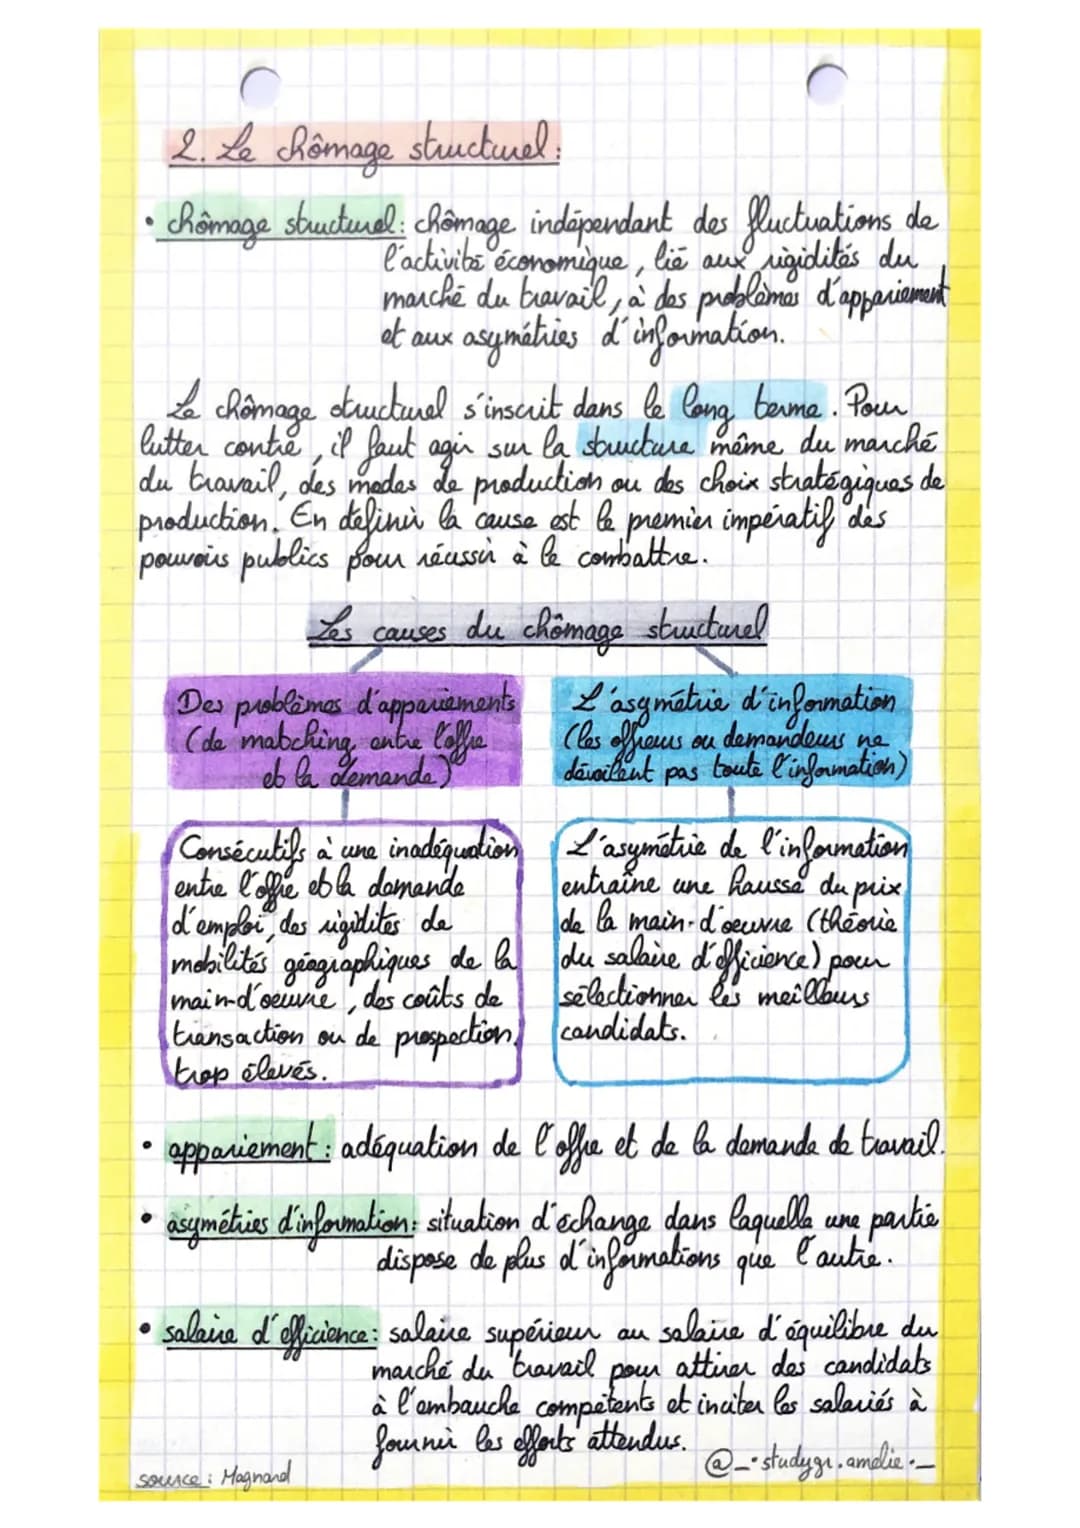 2. Le chômage structurel :
• chômage structurel : chômage indépendant des fluctuations de
l'activité économique, lié aux rigidités du
marché du travail, à des problèmes d'appariement
et aux asymétries d'information.
Le chômage structurel s'inscrit dans le long terme. Pour
lutter contre, il faut agir sur la structure même du marché
du travail, des modes de production ou des choix stratégiques de
production. En définir la cause est le premier impératif des
pouvoirs publics pour réussir à le combattre.
Les causes du chômage structurel
Des problèmes d'appariements
(de matching entre l'offre
et la demande)
Consécutifs à une inadéquation
entre l'offre et la demande
d'emploi, des rigidités de
mobilités géographiques de la
main-d'oeuvre, des coûts de
transaction ou de prospection
trop élevés.
L'asymétrie d'information
(les offreurs ou demandeurs ne
dévoilent pas toute l'information)
L'asymétrie de l'information
entraîne une hausse du prix
de la main-d'oeuvre (théorie
du salaire d'efficience) pour
sélectionner les meilleurs
candidats.
• appariement : adéquation de l'offre et de la demande de travail.
• asymétries d'information : situation d'échange dans laquelle une partie
dispose de plus d'informations que l'autre.
• salaire d'efficience : salaire supérieur au salaire d'équilibre du
marché du travail pour attirer des candidats
à l'embauche compétents et inciter les salariés à
fournir les efforts attendus.
source : Magnard
@_•studygr.amelie•_